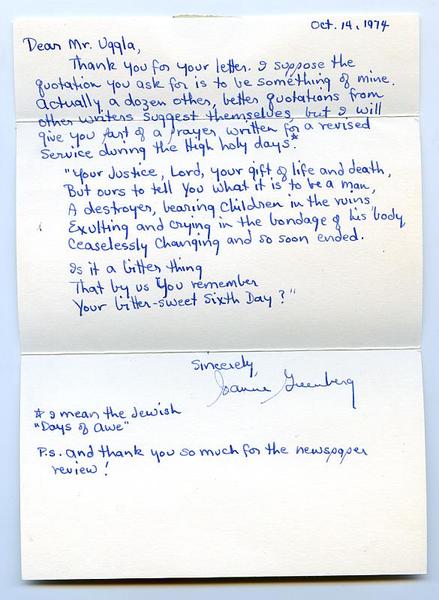 Oct. 14, 1974
Dear Mr. Uggla,
Thank you for your letter. I suppose the
quotation you ask for is to be something of mine.
Actually, a dozen other, better quotations from
other writers suggest themselves, but I will
give you part of a prayer, written for a revised
service during the High holy days.*
"Your Justice, Lord, your gift of life and death,
But ours to tell You what it is to be a man,
A destroyer, bearing children in the ruins,
Exulting and crying in the bondage of his body,
Ceaselessly changing and so soon ended.
Is it a bitter thing
That by us You remember
Your bitter-sweet Sixth Day?"
Sincerely,
Joanne Greenberg
* I mean the Jewish
"Days of Awe"
P.S. and thank you so much for the newspaper
review!